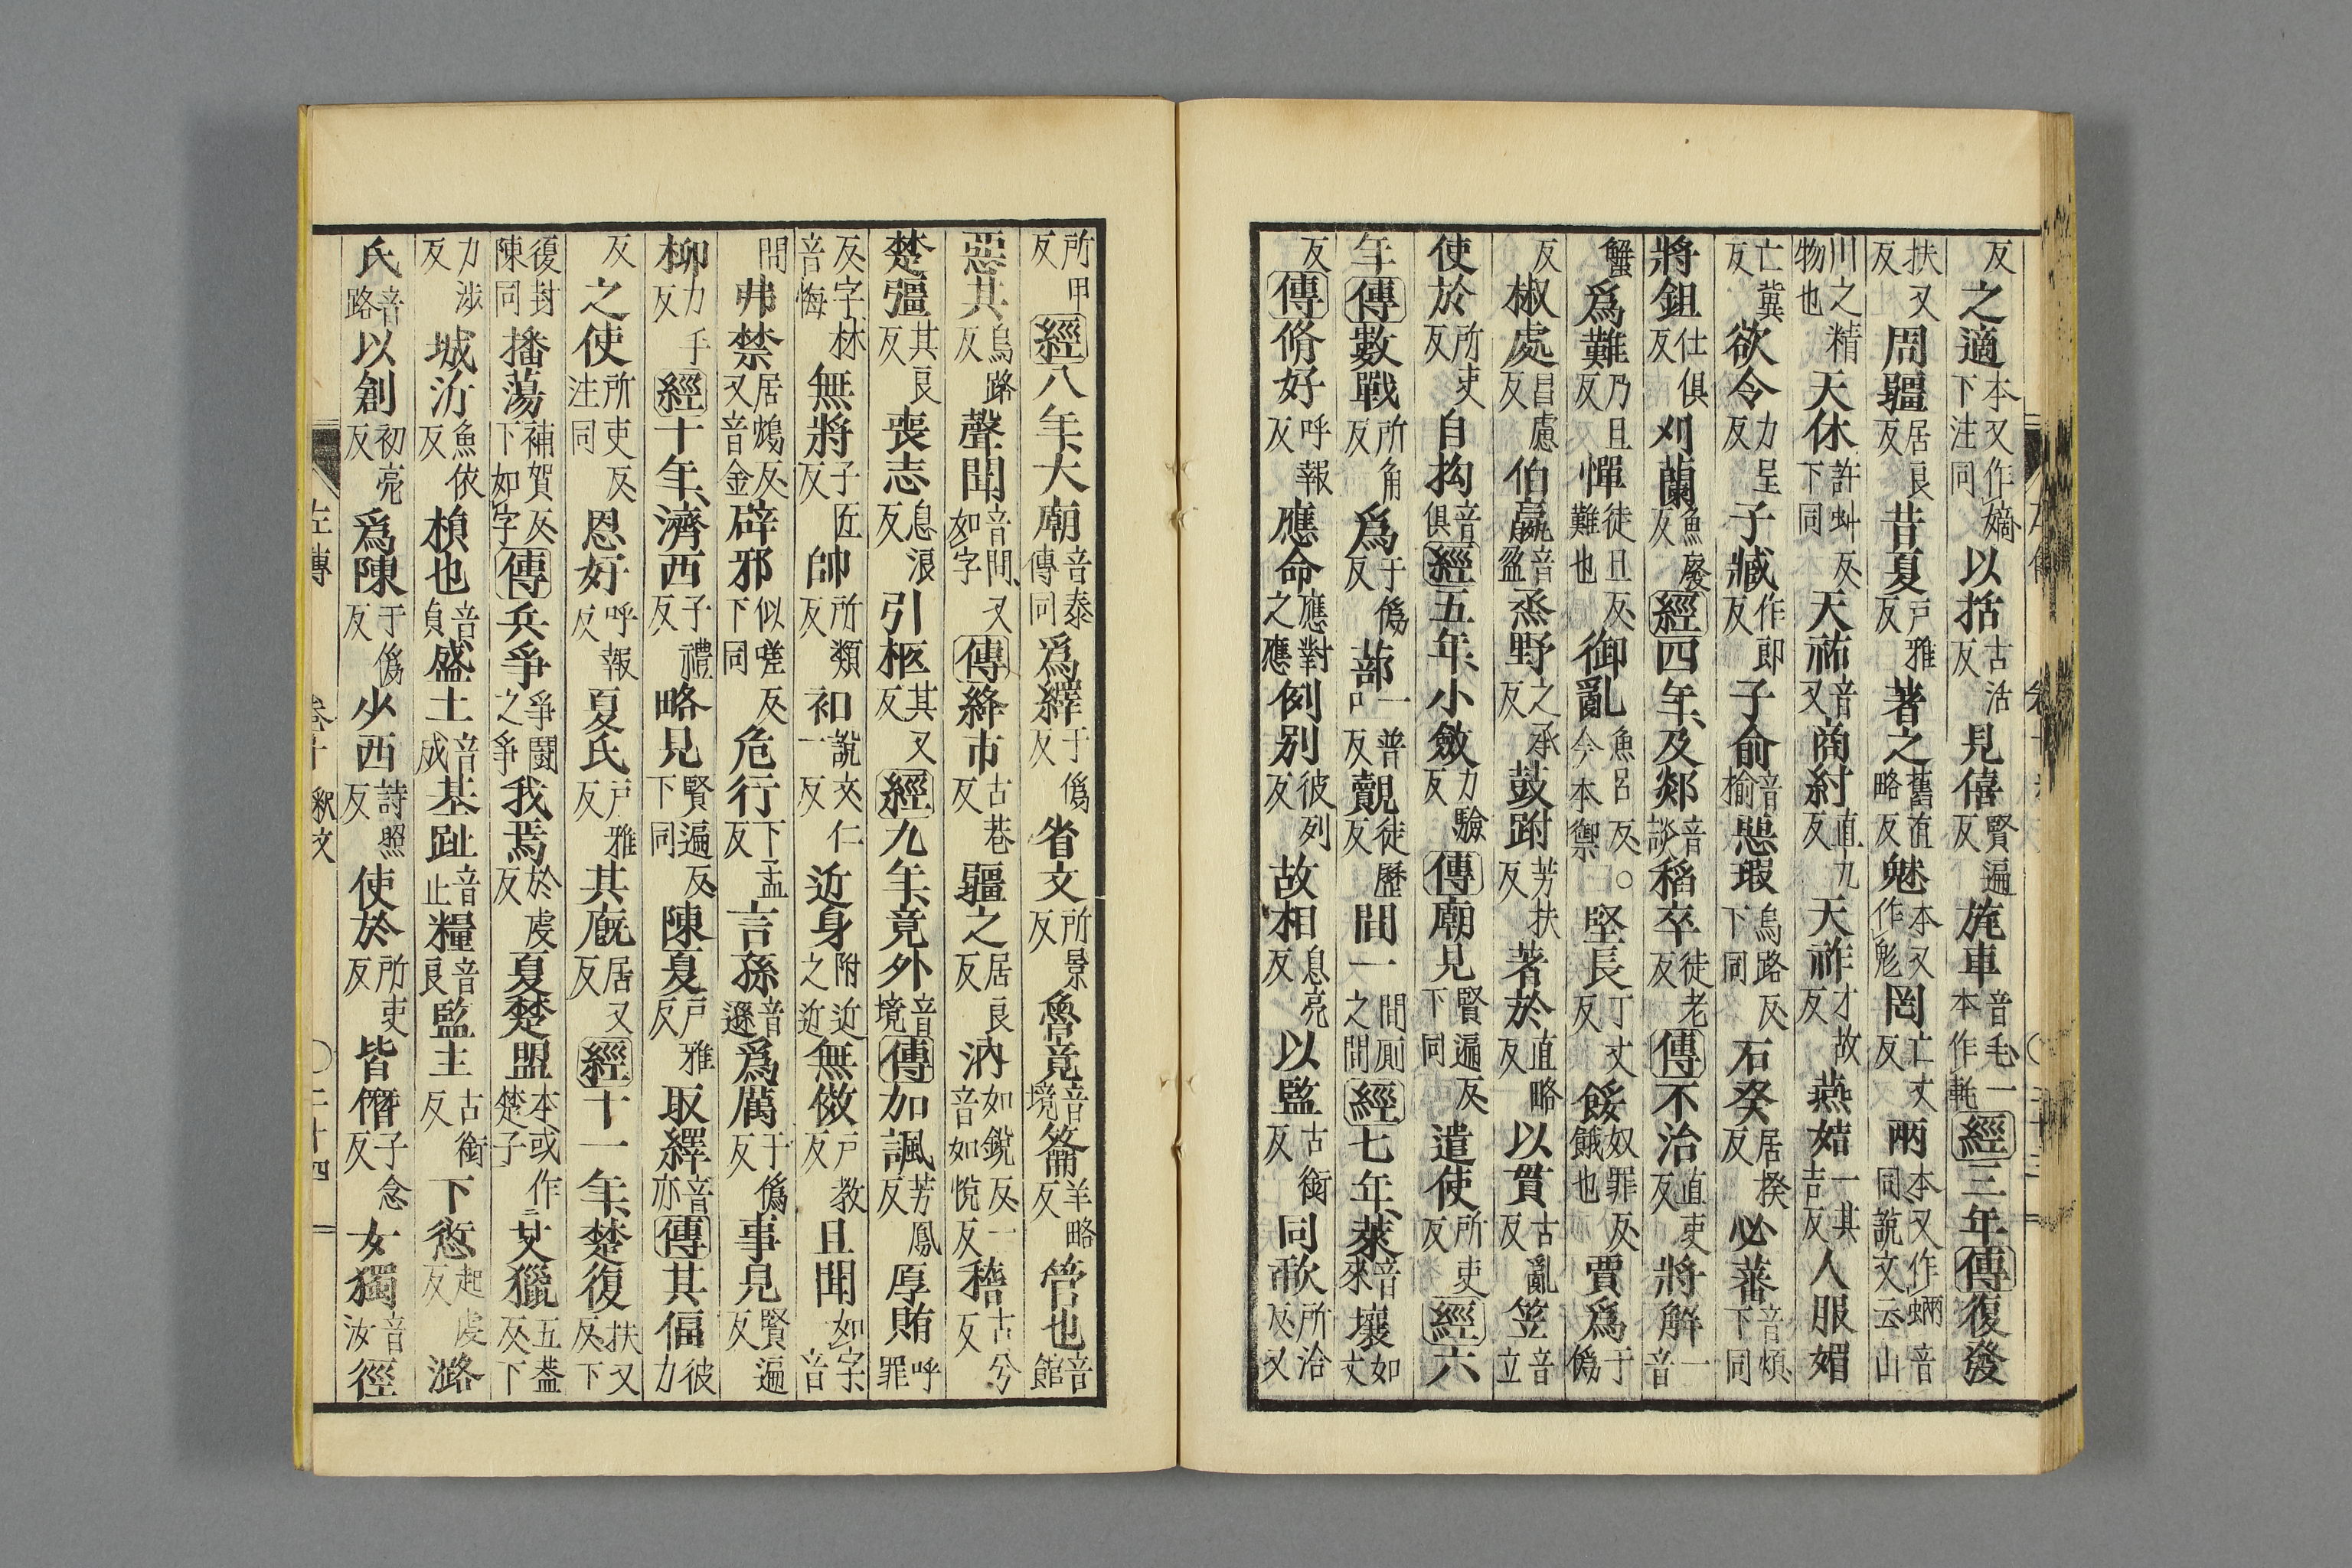 反之適本又作嫡下注同以括古活反見僖賢遍反旄車音毛一本作軞經三年傳復發
扶又反周疆居良反昔夏戶雅反著之舊直略反魅本又作鬽罔亡丈反兩本又作蜽音同說文云山
川之精物也天休許虯反下同天祐音又商紂直九反天祚才故反燕姞一其吉反人服媚
亡冀反欲令力呈反子臧作郎反子俞音榆惡瑕烏路反下同石癸居揆反必蕃音煩下同
將鉏仕俱反刈蘭魚廢反經四年、及郯音談稻卒徒老反傳不治直吏反將解一音
蟹爲難乃旦反憚徒旦反難也御亂魚呂反今本禦○堅長丁丈反餒奴罪反餓也賈爲于僞
反椒處昌慮反伯嬴音盈烝野之承反鼓跗芳扶反著於直略反以貫古亂反笠音立
使於所吏反自拘音俱經五年、小斂力驗反傳廟見賢遍反下同遣使所吏反經六
年傳數戰所角反爲于僞反蔀一普口反覿徒歷反間一間廁之間經七年、萊音來壤如丈
反傳脩好呼報反應命應對之應例別彼列反故相息亮反以監古銜反同歃所洽反又
所甲反經八年、大廟音泰傳同爲繹于僞反省文所景反魯竟音境籥羊略反管也音館
惡其烏路反聲聞音間、又如字傳絳市古巷反疆之居良反汭如銳反一音如悅反嵇古兮反
楚彊其良反喪志息浪反引柩其又反經九年、竟外音境傳加諷芳鳳反厚賄呼罪
反、字林音悔無將子匠反帥所類反衵說文一仁反近身附近之近無傚戶教反且聞如字音
問弗禁居鴆反、又音金辟邪似嗟反下同危行下孟反言孫音遜爲厲于僞反事見賢遍
反柳力手反經十年、濟西子禮反略見賢遍反下同陳夏戶雅反取繹音亦傳其偪彼力
反之使所吏反、注同恩好呼報反夏氏戶雅反其廐居又反經十一年、楚復扶又反、下
復封陳同播蕩補賀反、下如字傳兵爭爭鬪之爭我焉於虔反夏楚盟本或作楚子艾獵五蓋反、下
力涉反城沂魚依反楨也音貞盛土音成基趾音止糧音良監主古銜反下愆起虔反潞
氏音路以創初亮反爲陳于僞反少西詩照反使於所吏反皆僭子念反女獨音汝徑
左傳 卷十 釈文 ○ 二十四